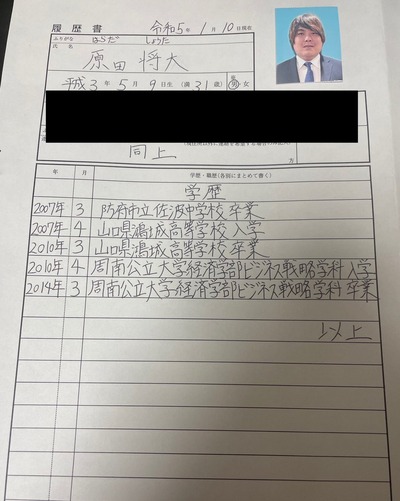 履歴書 令和5年1月10日現在
ふりがな はらだ しょうた
氏名 原田 将太
平成3年5月9日生(満31歳) 男・女
同上
方
年 月 学歴・職歴(各別にまとめて書く)
学歴
2007年 3 防府市立佐波中学校 卒業
2007年 4 山口県鴻城高等学校 入学
2010年 3 山口県鴻城高等学校 卒業
2010年 4 周南公立大学経済学部ビジネス戦略学科 入学
2014年 3 周南公立大学経済学部ビジネス戦略学科 卒業
以上